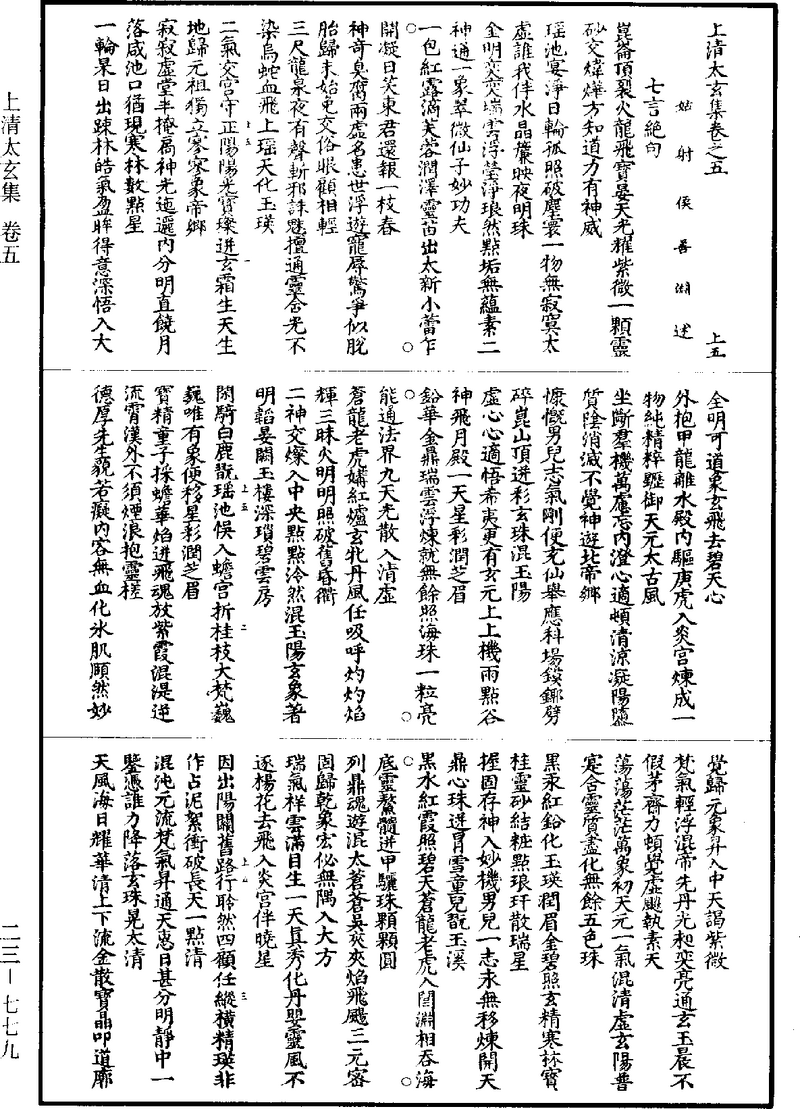 上清太玄集卷之五　上五
姑射侯善淵述
七言絕句
崑崙頂裂火龍飛寶晏天光耀紫微一顆靈
砂交煒燁方知道力有神威
瑤池宴淨日輪孤照破塵寰一物無寂寞太
虛誰我伴水晶簾映夜明珠
金明奕奕瑞雲浮瑩淨琅然點垢無蘊素二
神通一象翠微仙子妙功夫
一包紅露滴芙蓉潤澤靈苗出太新小蕾乍
開凝日笑東君還報一枝春
神奇臭腐兩虛名患世浮遊寵辱驚爭似脫
胎歸未始免交俗眼顧相輕
三尺龍泉夜有聲斬邪誅魅擅通靈含光不
染烏蛇血飛上瑤天化玉瑛
二氣交宮守正陽陽光寶燦迸玄霜生天生
地歸元祖獨立寥寥象帝鄉
寂寂虛堂半掩扃神光迤邐內分明直饒月
落咸池口猶現寒林數點星
一輪杲日出疎林皓氣盈眸得意深悟入大
全明可道象玄飛去碧天心
外抱甲龍離水殿內驅庚虎入炎宮煉成一
物純精粹躔御天元太古風
坐斷羣機萬慮忘內澄心適頓清涼凝陽隳
質陰消滅不覺神遊北帝鄉
慷慨男兒志氣剛便充仙舉應科場鏌鎁劈
碎崑山頂迸彩玄珠混玉陽
虛心心適悟希夷更有玄元上上機兩點谷
神飛月殿一天星彩潤芝眉
鉛華金鼎瑞雲浮煉就無餘照海珠一粒亮
能通法界九天光散入清虛
蒼龍老虎媾紅爐玄牝丹風任吸呼灼灼焰
輝三昧火明明照破舊昏衢
二神交燦入中央點點泠然混玉陽玄象著
明韜晏闕玉樓深瑣碧雲房
閑騎白鹿翫瑤池悞入蟾宮折桂枝大梵巍
巍唯有象便移星彩潤芝眉
寶精童子採蟾華焰迸飛魂放紫霞混湜逆
流霄漢外不須煙浪抱靈槎
德厚先生藐若癡內容無血化氷肌顒然妙
覺歸元象昇入中天謁紫微
梵氣輕浮混帝先丹光昶奕亮通玄玉晨不
假茅齋力頓覺虛飈執素天
蕩蕩茫茫萬象初天元一氣混清虛玄陽普
寔含靈質盡化無餘五色珠
黑汞紅鉛化玉瑛潤眉金碧照玄精寒林寶
桂靈砂結粧點琅玕散瑞星
握固存神入妙機男兒一志永無移煉開天
鼎心珠迸胃雪童兒翫玉溪
黑水紅霞照碧天蒼龍老虎入誾淵相吞海
底靈鰲髓迸甲驪珠顆顆圓
列鼎魂遊混太蒼蒼吳夾夾焰飛颺三元密
固歸乾象宏佖無隅入大方
瑞氣祥雲滿目生一天真秀化丹嬰靈風不
逐楊花去飛入炎宮伴曉星
因出陽關舊路行聆然四顧任縱橫精瑛非
作占泥絮衝破長天一點清
混沌元流梵氣昇通天惠日甚分明靜中一
鑒憑誰力降落玄珠晃太清
天風海日耀華清上下流金散寶晶叩道廓
上清太玄集　卷五
二三—七七九